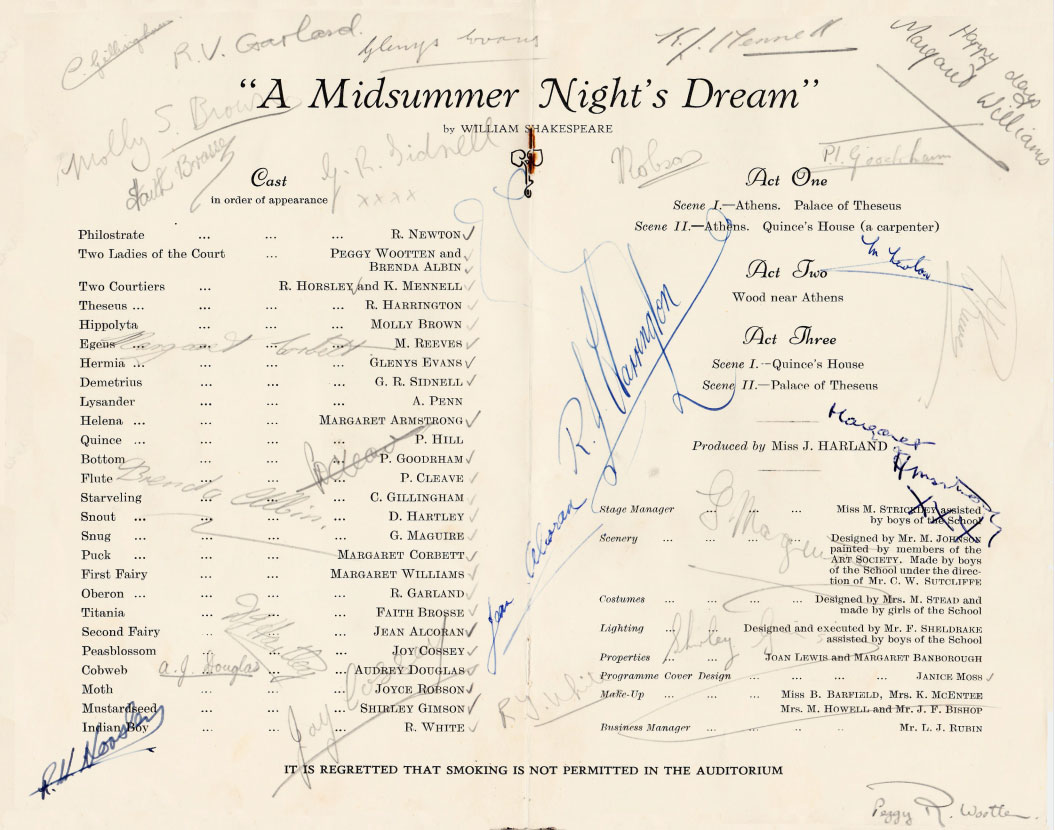 C. Gillingham
R. V. Garland.
Glenys Evans
K. J. Mennell
Happy days
Margaret Williams
"A Midsummer Night's Dream"
by WILLIAM SHAKESPEARE
Molly S. Brown
Faith Brosse
G. R. Sidnell
xxxx
Robson
P. Goodrham
Cast
in order of appearance
Philostrate ... ... ... R. NEWTON
Two Ladies of the Court ... PEGGY WOOTTEN and
BRENDA ALBIN
Two Courtiers ... R. HORSLEY and K. MENNELL
Theseus ... ... ... R. HARRINGTON
Hippolyta ... ... ... MOLLY BROWN
Egeus ... ... ... M. REEVES
Hermia ... ... ... GLENYS EVANS
Demetrius ... ... ... G. R. SIDNELL
Lysander ... ... ... A. PENN
Helena ... ... ... MARGARET ARMSTRONG
Quince ... ... ... P. HILL
Bottom ... ... ... P. GOODRHAM
Flute ... ... ... P. CLEAVE
Starveling ... ... ... C. GILLINGHAM
Snout ... ... ... D. HARTLEY
Snug ... ... ... G. MAGUIRE
Puck ... ... ... MARGARET CORBETT
First Fairy ... ... ... MARGARET WILLIAMS
Oberon ... ... ... R. GARLAND
Titania ... ... ... FAITH BROSSE
Second Fairy ... ... ... JEAN ALCORAN
Peasblossom ... ... ... JOY COSSEY
Cobweb ... ... ... AUDREY DOUGLAS
Moth ... ... ... JOYCE ROBSON
Mustardseed ... ... ... SHIRLEY GIMSON
Indian Boy ... ... ... R. WHITE
Margaret Corbett
Brenda Albin.
D. Hartley
A. J. Douglas
Joy Cossey
R. H. Horsley
R. J. Harrington
Jean Alcoran
R. J. White
Act One
Scene I.—Athens. Palace of Theseus
Scene II.—Athens. Quince's House (a carpenter)
Act Two
Wood near Athens
Act Three
Scene I.—Quince's House
Scene II.—Palace of Theseus
Produced by Miss J. HARLAND
Margaret
Armstrong
XXX
Stage Manager ... ... ... Miss M. STRICKLEY assisted
by boys of the School
Scenery ... ... ... Designed by Mr. M. JOHNSON
painted by members of the
ART SOCIETY. Made by boys
of the School under the direc-
tion of Mr. C. W. SUTCLIFFE
Costumes ... ... ... Designed by Mrs. M. STEAD and
made by girls of the School
Lighting ... ... Designed and executed by Mr. F. SHELDRAKE
assisted by boys of the School
Properties ... ... JOAN LEWIS and MARGARET BANBOROUGH
Programme Cover Design ... ... ... JANICE MOSS
Make-Up ... ... ... Miss B. BARFIELD, Mrs. K. McENTEE
Mrs. M. HOWELL and Mr. J. F. BISHOP
Business Manager ... ... ... Mr. L. J. RUBIN
G. Maguire
Shirley Gimson
IT IS REGRETTED THAT SMOKING IS NOT PERMITTED IN THE AUDITORIUM
Peggy R. Wootten.